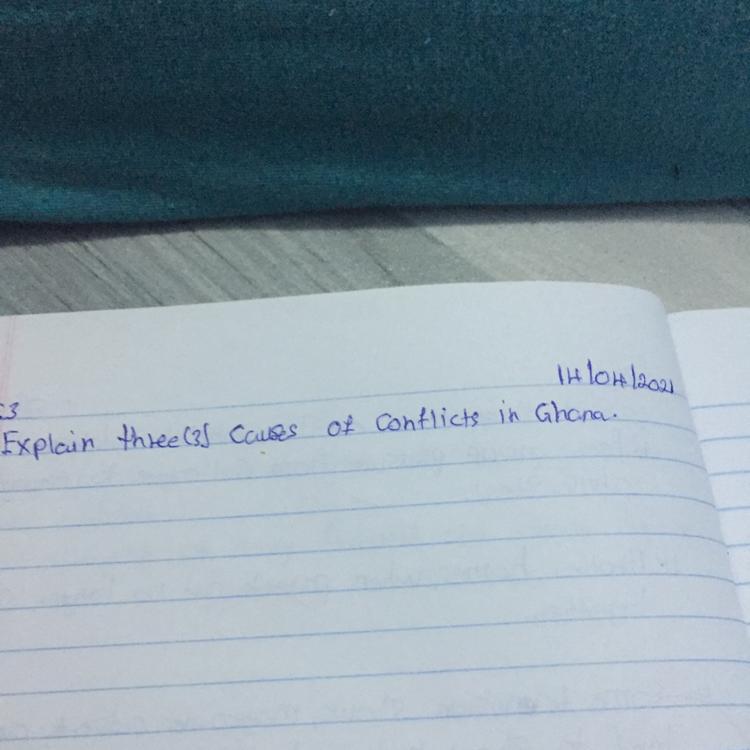 14/04/2021
.3
Explain three(3) Causes of Conflicts in Ghana.